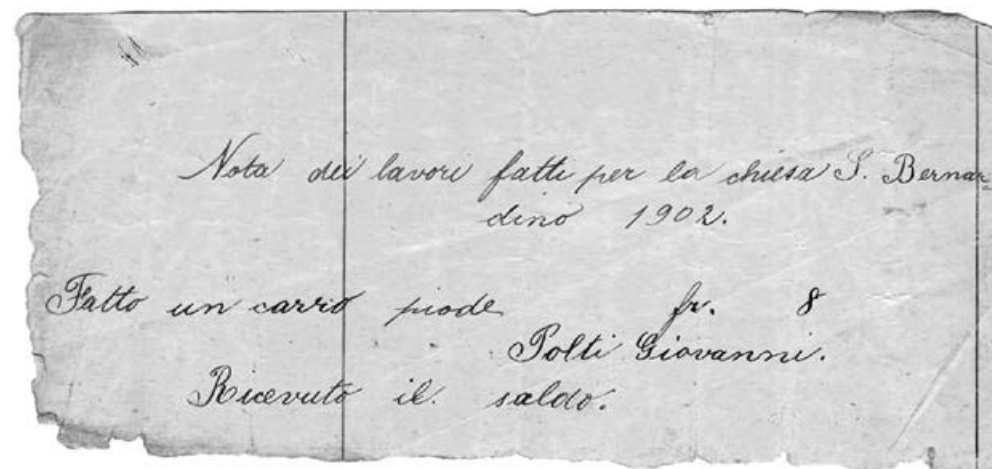 Nota dei lavori fatti per la chiesa S. Bernar=
dino 1902.
Fatto un carro piode fr. 8
Polti Giovanni.
Ricevuto il saldo.